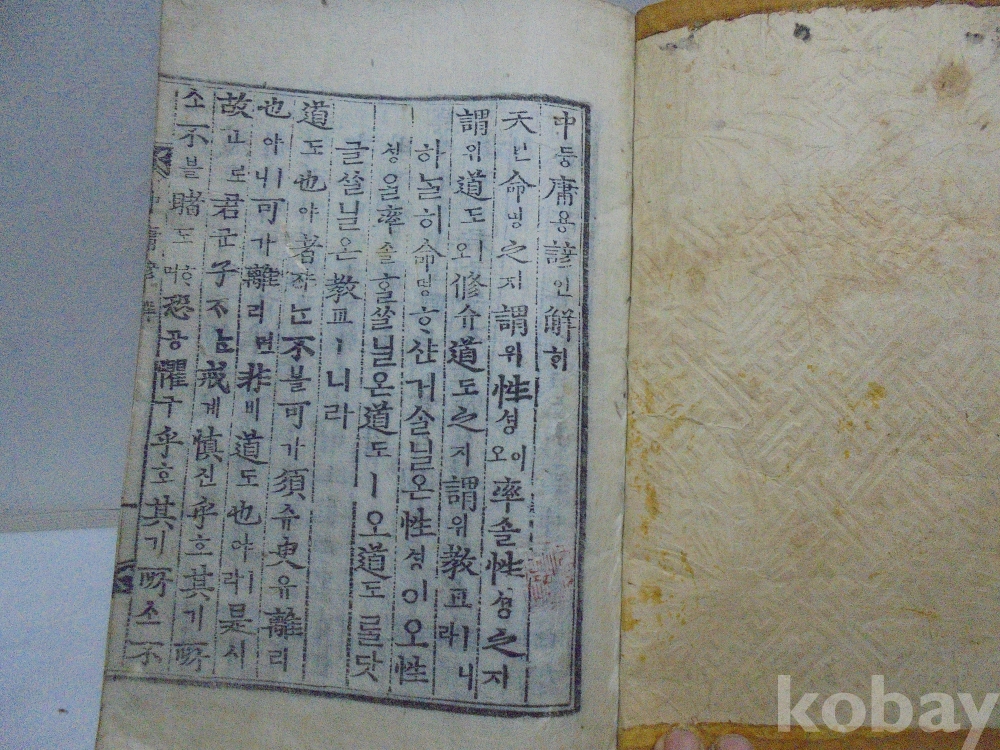 中듕庸용諺언解ᄒᆡ
天텬命명之지謂위性셩이오率솔性셩之지
謂위道도ㅣ오修슈道도之지謂위敎교ㅣ니라
하ᄂᆞᆯ히命명ᄒᆞ샨거슬닐온性셩이오性
셩을率솔ᄒᆞᆯ쓸닐온道도ㅣ오道도ᄅᆞᆯ닷
글쓸닐온敎교ㅣ니라
道도也야者쟈ᄂᆞᆫ不블可가須슈臾유離리
也야ㅣ니可가離리면非비道도也야ㅣ라是시
故고로君군子ᄌᆞᄂᆞᆫ戒계愼신乎호其기所
소不블睹도ᄒᆞ며恐공懼구乎호其기所소不
中庸諺解
kobay